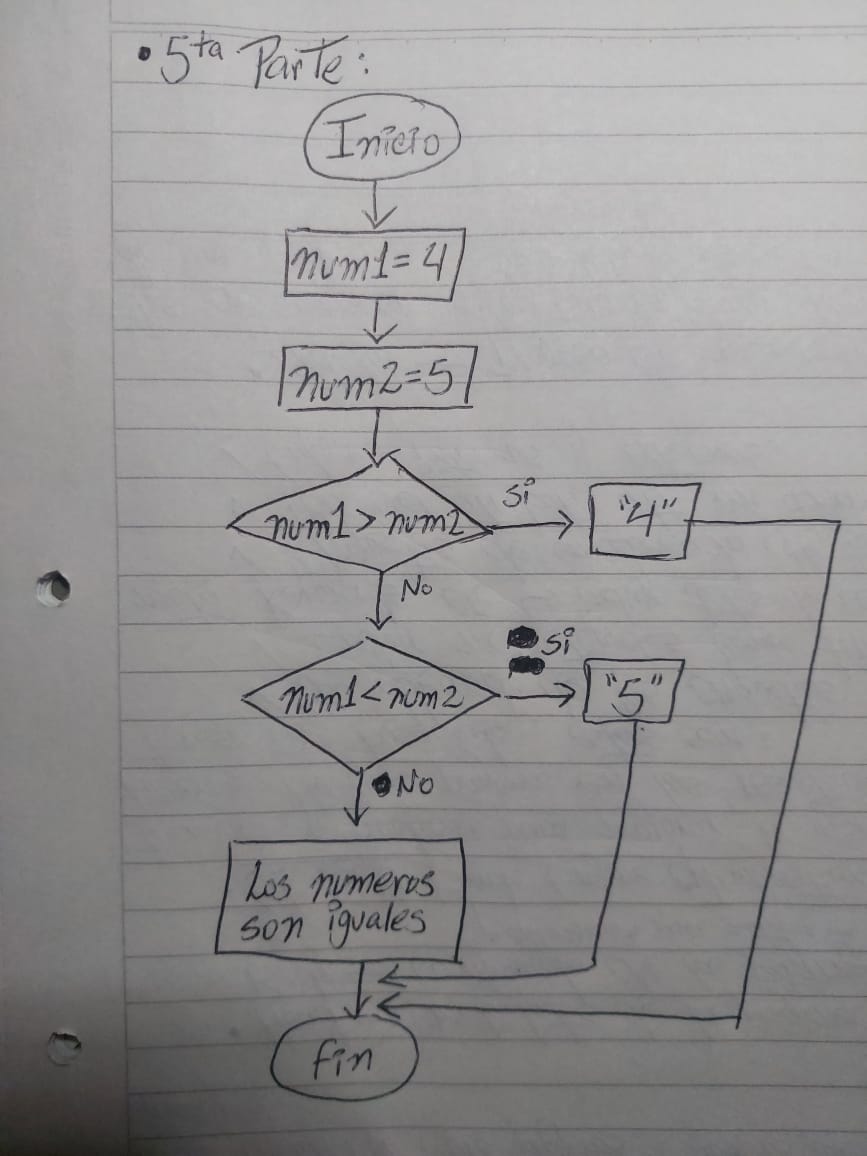 • 5ta Parte:
Inicio
num1=4
num2=5
num1> num2
Si
"4"
No
num1<num2
Si
"5"
No
Los numeros
son iguales
Fin